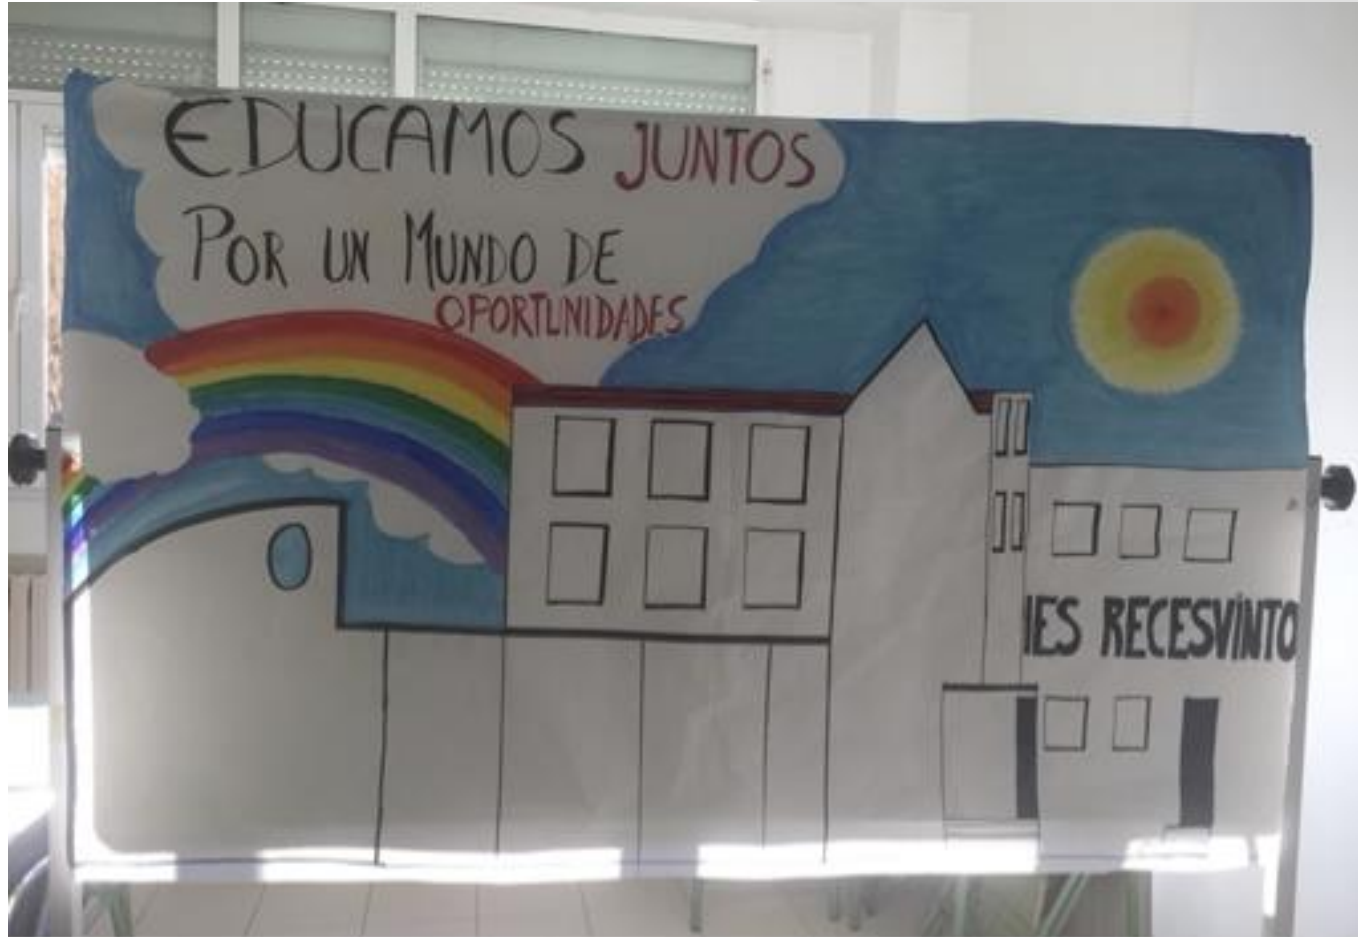 EDUCAMOS JUNTOS
POR UN MUNDO DE
OPORTUNIDADES
IES RECESVINTO